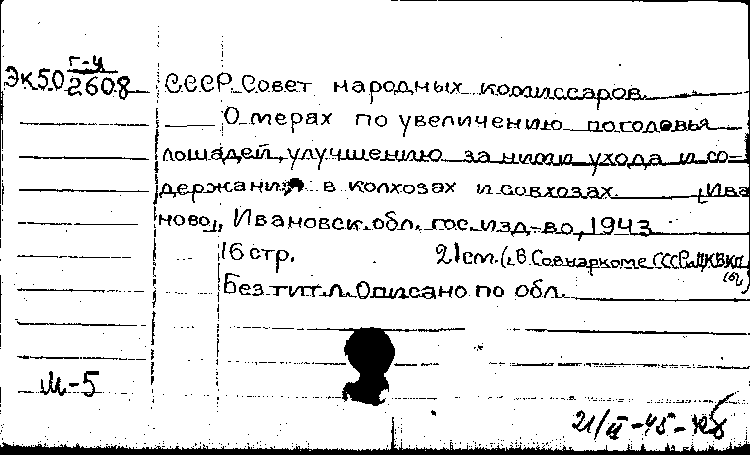 г-ч
Эк50 2608 СССР. Совет народных комиссаров.
О мерах по увеличению поголовья
лошадей, улучшению за ними ухода и со-
держания в колхозах и совхозах. [Ива
ново], Ивановск. обл. гос. изд-во, 1943
16 стр. 21 см. (, В Совнаркоме СССР и ЦК ВКП
(б))
Без тит. л. Описано по обл.
М-5
21/II-45-